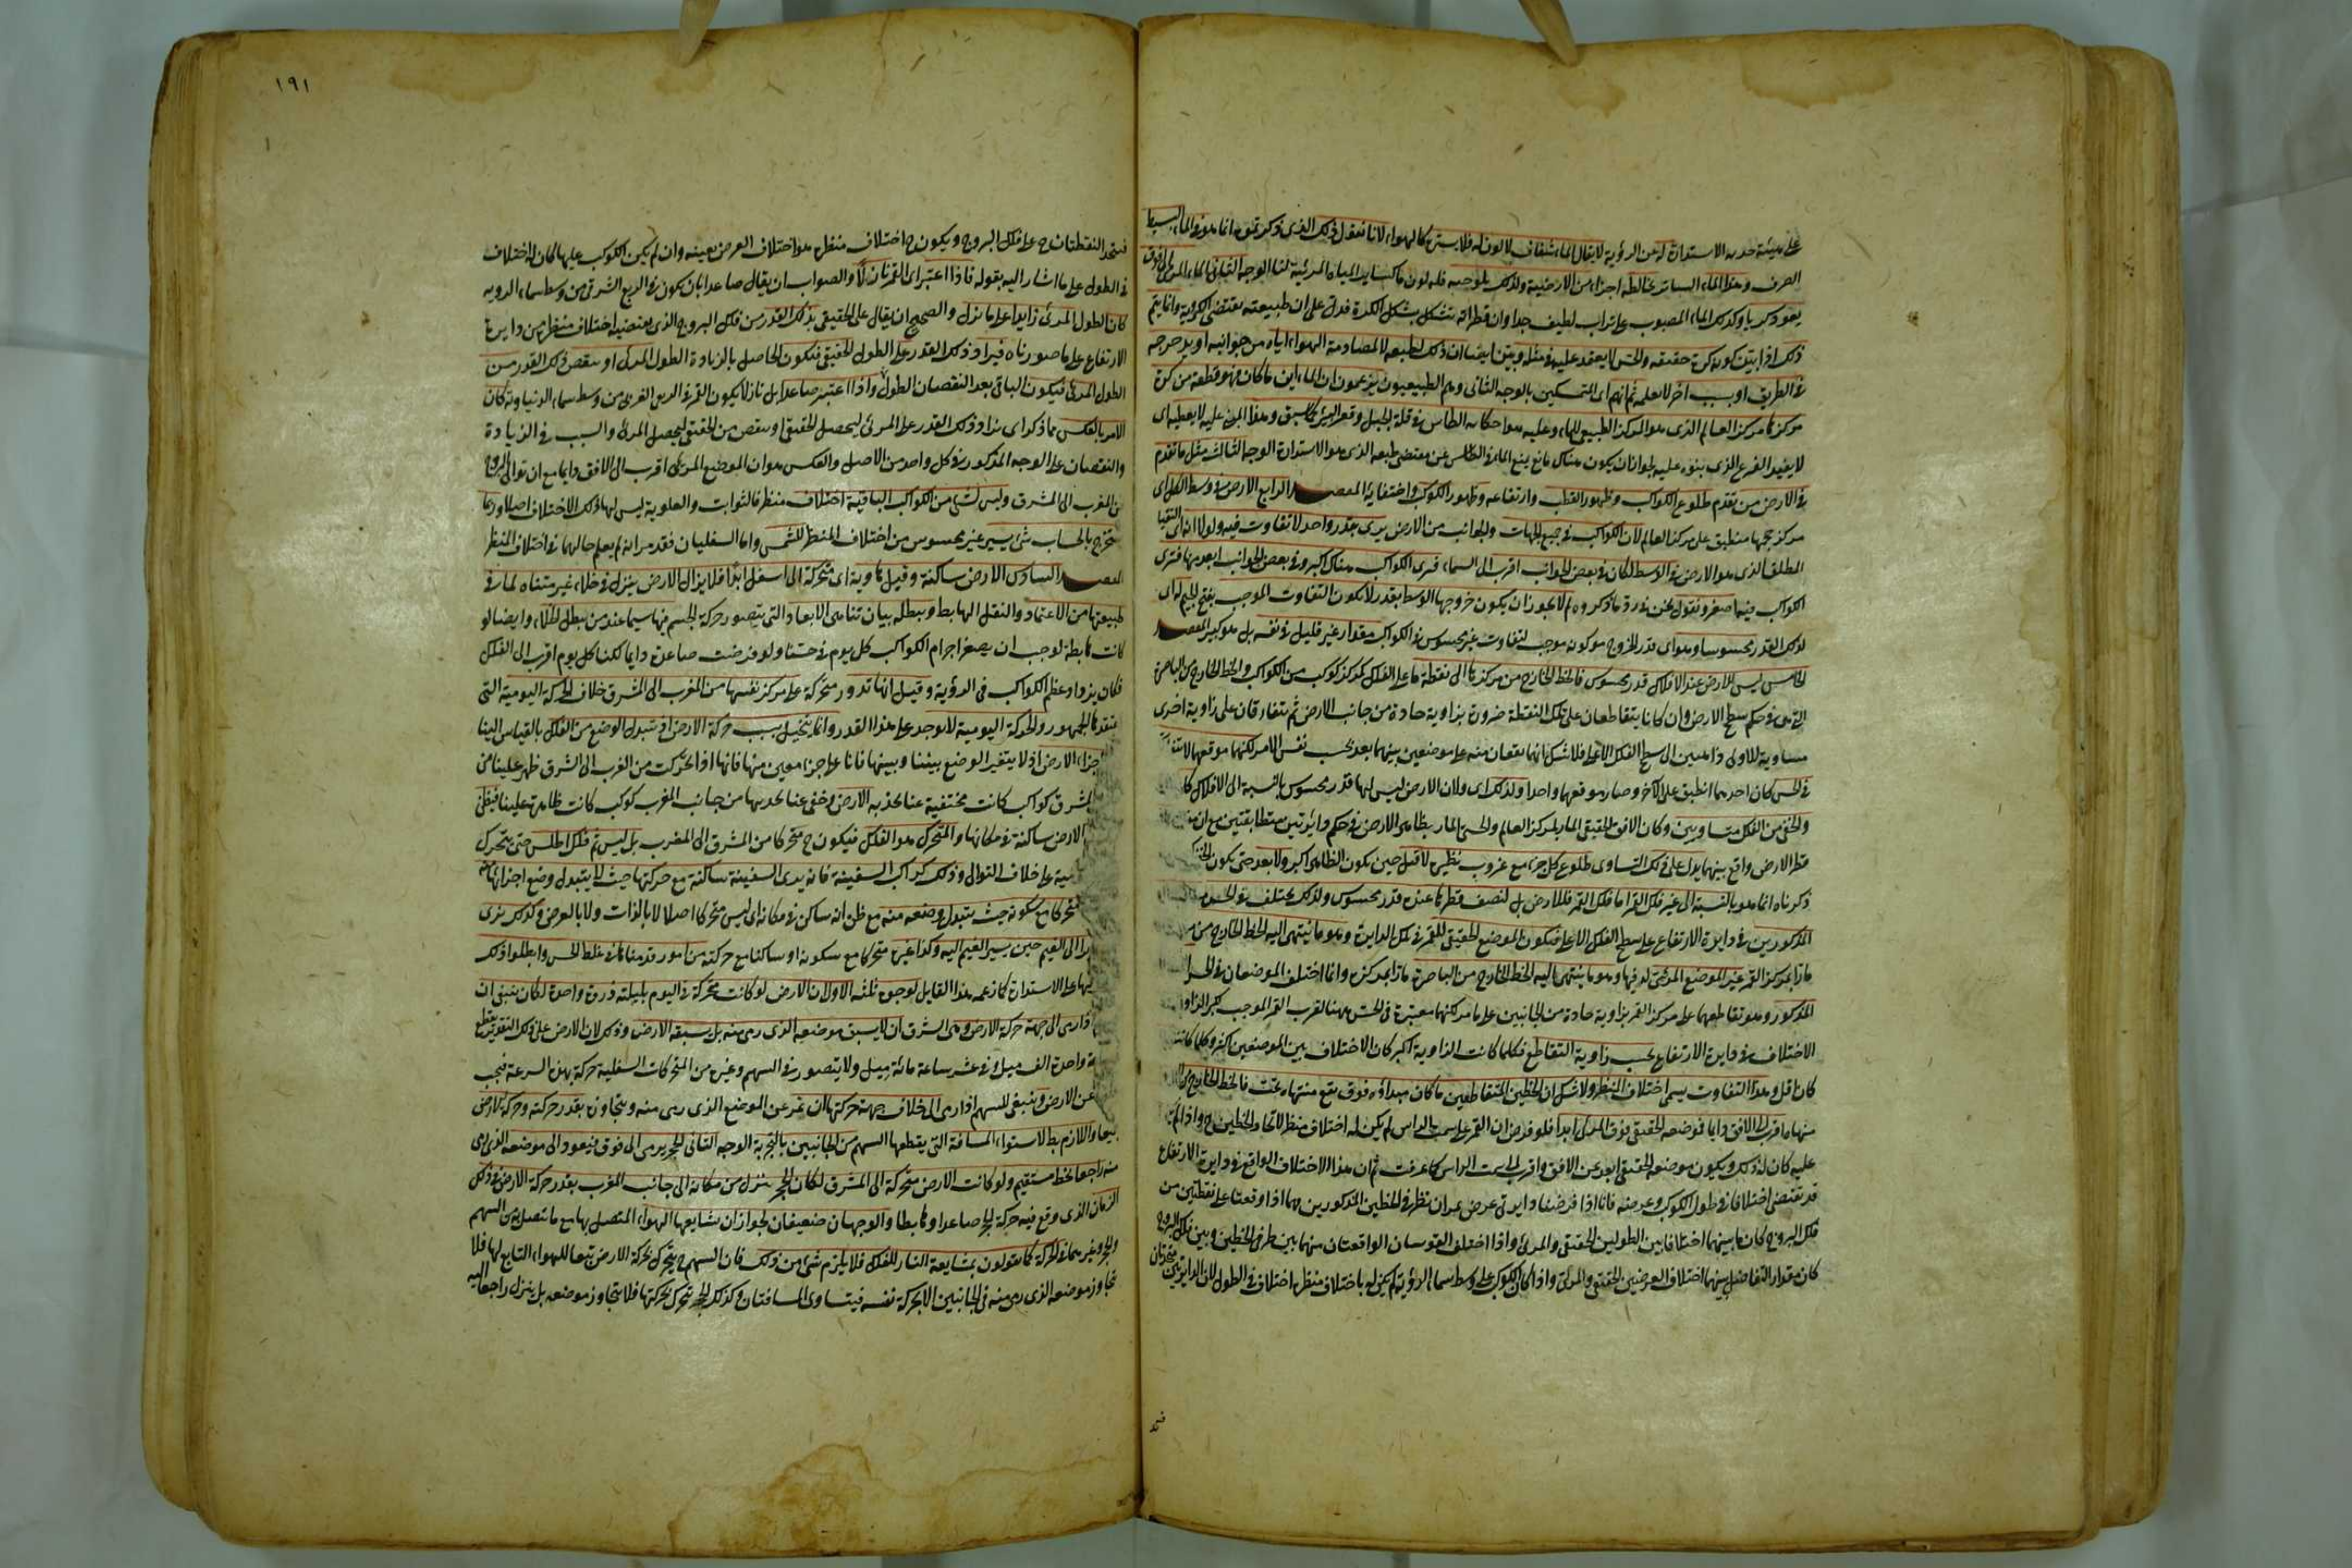 على هيئة حدبه الاستدارة له عن الرؤية لا يقال الماء شفاف لا لون له فلا يستر كالهواء لانا نقول ذلك الذى ذكرتموه انما هو فى الماء البسيط
الصرف وهذا الماء الساتر يخالطه اجزاء من الارضية ولذلك ملوحته فله لون ما كسائر المياه المرئية لنا الوجه الثانى الماء المرمى الى فوق
يعود كريا وكذلك الماء المصبوب على تراب لطيف جدا وان قطراته تتشكل بشكل الكرة فدل على ان طبيعته تقتضى الكرية وانما يتم
ذلك اذا بين كونه كرة حقيقة والحس لا يعتمد عليه فى مثله وبين ايضا ان ذلك لطبيعه لا لمصادمة الهواء اياه من جوانبه او يدحرجه
فى الطريق او بسبب اخر لا نعلمه ثم انهم اى المتمسكين بالوجه الثانى وهم الطبيعيون يزعمون ان الماء اين ما كان فهو قطعة من كرة
مركزها مركز العالم الذى هو المركز الطبيعى للماء وعليه هذا حكاية الطاس فى قلة الجبل وقعر البئر كما سبق وهذا المبنى عليه لا يعطيه اى
لا يفيد الفرع الذى بنوه عليه لجواز ان يكون هناك مانع يمنع الماء فى الطاس عن مقتضى طبعه الذى هو الاستدارة الوجه الثالث مثل ما تقدم
فى الارض من تقدم طلوع الكواكب وظهور القطب وارتفاعه وظهور الكواكب واختفائه المقصد الرابع الارض فى وسط الكل اى
مركز حجمها منطبق على مركز العالم لان الكواكب فى جميع الجهات والجوانب من الارض يرى بقدر واحد لا تفاوت فيه ولولا انه اى الثقيل
المطلق الذى هو الارض فى الوسط لكان فى بعض الجوانب اقرب الى السماء فيرى الكواكب هناك اكبر وفى بعض الجوانب ابعد منها فترى
الكواكب فيها اصغر ونقول نحن فى رد ما ذكروه لم لا يجوز ان يكون خروجها عن الوسط بقدر لا يكون التفاوت الموجب بفتح الجيم له اى
لذلك القدر محسوسا وهو اى قدر الخروج مع كونه موجبا لتفاوت غير محسوس فى الكواكب مقدار غير قليل فى نفسه بل هو كبير المقصد
الخامس ليس للارض عند الافلاك قدر محسوس فالخط الخارج من مركزها الى نقطة ما على الفلك كمركز كوكب من الكواكب والخط الخارج من الباصرة
التى هى فى حكم سطح الارض وان كانا يتقاطعان على تلك النقطة ضرورة بزاوية حادة من جانب الارض ثم يتفارقان على زاوية اخرى
مساوية للاولى ذاهبين الى سطح الفلك الاعلى فلا شك انهما يقعان منه على موضعين بينهما بعد بحسب نفس الامر لكنهما موقعهما
فى الحس كان احدهما انطبق على الآخر وصار موقعهما واحدا ولذلك اى ولان الارض ليس لها قدر محسوس بالنسبة الى الافلاك كا
والخفى من الفلك متساويين وكان الافق الحقيقى المار بمركز العالم والحسى المار بظاهر الارض فى حكم دائرتين متطابقتين مع ان
قطر الارض واقع بينهما يدل على ذلك التساوى طلوع كل جزء مع غروب نظيره لا قبل حتى يكون الظاهر اكبر ولا بعد حتى يكون
ذكرناه انما هو بالنسبة الى غير فلك القمر اما فلك القمر فللارض بل لنصف قطرها عنده قدر محسوس ولذلك يختلف فى الحس
المذكورين فى دايرة الارتفاع على سطح الفلك الاعلى فيكون الموضع الحقيقى للقمر فى تلك الدايرة وهو ما ينتهى اليه الخط الخارج من
مارا بمركز القمر غير الموضع المرئى له فيها وهو ما ينتهى اليه الخط الخارج من الباصرة مارا بمركزه وانما اختلف الموضعان فى
المذكور وهو تقاطعهما على مركز القمر بزاوية حادة من الجانبين على ما مر لكنها معتبرة فى الحس ههنا لقرب القمر الموجب كبر الزاوية
الاختلاف فى دايرة الارتفاع بحسب زاوية التقاطع فكلما كانت الزاوية اكبر كان الاختلاف بين الموضعين اكثر وكلما كانت
كان اقل وهذا التفاوت يسمى اختلاف المنظر ولا شك ان الخطين المتقاطعين ما كان مبداؤه فوق يقع منتهاه تحت فالخط الخارج
منها ما اقرب الى الافق دايما فموضعه الحقيقى فوق المرئى ابدا فلو فرض ان القمر على سمت الراس لم يكن له اختلاف منظر لاتحاد الخطين ح واذا لم
عليه كان له ذلك ويكون موضعه الحقيقى ابعد عن الافق واقرب الى سمت الراس كما عرفت ثم ان هذا الاختلاف الواقع فى دايرة الارتفاع
قد تقتضى اختلافا فى طول الكوكب وعرضه فانا اذا فرضنا دايرتى عرض يمران بطرفى الخطين المذكورين فهما اذا وقعتا على نقطتين من
فلك البروج كان ما بينهما اختلافا بين الطولين الحقيقى والمرئى واذا اختلف القوسان الواقعتان منهما بين طرفى الخطين وبين فلك البروج
كان مقدار التفاضل بينهما اختلاف العرضين الحقيقى والمرئى واذا كان الكوكب على وسط سماء الرؤية لم يكن له باختلاف منظره اختلاف فى الطول لان الدايرتين متحدتان
فيتحد
١٩١
فيتحد النقطتان ح على فلك البروج ويكون ح اختلاف منظره هو اختلاف العرض بعينه وان لم يكن الكوكب عليها كان له اختلاف
فى الطول على ما اشار اليه بقوله فاذا اعتبر اى القمر نازلا والصواب ان يقال صاعدا بان يكون فى الربع الشرقى من وسط سماء الرويه
كان الطول المرئى زايدا على ما نزل والصحيح ان يقال على الحقيقى بذلك القدر من فلك البروج الذى يقتضيه اختلاف منظره من دايرة
الارتفاع على ما صورناه فيزاد ذلك القدر على الطول الحقيقى فيكون الحاصل بالزيادة الطول المرئى او ينقص ذلك القدر من
الطول المرئى فيكون الباقى بعد النقصان الطول واذا اعتبر صاعدا بل نازلا يكون القمر فى الربع الغربى من وسط سماء الرؤية كان
الامر بالعكس مما ذكر اى يزاد ذلك القدر على المرئى ليحصل الحقيقى او ينقص من الحقيقى ليحصل المرئى والسبب فى الزيادة
والنقصان على الوجه المذكور فى كل واحد من الاصل والعكس هو ان الموضع المرئى اقرب الى الافق دايما مع ان توالى البروج
من المغرب الى المشرق وليس لشئ من الكواكب الباقية اختلاف منظر فالثوابت والعلوية ليس لها ذلك الاختلاف اصلا وربما
يخرج بالحساب شئ يسير غير محسوس من اختلاف المنظر للشمس واما السفليان فقد مر انه لم يعلم حالهما فى اختلاف المنظر
المقصد السادس الارض ساكنة وقيل هاوية اى متحركة الى اسفل ابدا فلا يزال الارض ينزل فى خلاء غير متناه لما فى
طبيعتها من الاعتماد والثقل الهابط ويبطله بيان تناهى الابعاد التى يتصور حركة الجسم فيها سيما عند من يبطل الخلاء وايضا لو
كانت هابطة لوجب ان يصغر اجرام الكواكب كل يوم فى حسنا ولو فرضت صاعدة دايما لكنا كل يوم اقرب الى الفلك
فكان يزداد عظم الكواكب فى الرؤية وقيل انها تدور متحركة على مركز نفسها من المغرب الى المشرق خلاف الحركة اليومية التى
يعتقدها الجمهور والحركة اليومية لا توجد على هذا القدر وانما يتخيل بسبب حركة الارض اذ يتبدل الوضع من الفلك بالقياس الينا
اجزاء الارض اذ لا يتغير الوضع بيننا وبينها فانا على جزء معين منها فانها اذا تحركت من المغرب الى المشرق ظهر علينا من
المشرق كواكب كانت مختفية عنا بحدبة الارض وخفى عنا بحدبتها من جانب المغرب كوكب كانت ظاهرة علينا فيظن
الارض ساكنة فى مكانها والمتحرك هو الفلك فيكون ح متحركا من المشرق الى المغرب بل ليس ثم فلك اطلس حتى يتحرك
على خلاف التوالى وذلك كراكب السفينة فانه يرى السفينة ساكنة مع حركتها حيث لا يتبدل وضع اجزائها منه
متحركا مع سكونه حيث يتبدل وضعه منه مع ظن انه ساكن فى مكانه اى ليس متحركا اصلا لا بالذات ولا بالعرض وكذلك يرى
الى الغيم حين يسير الغيم اليه وكذا غيره متحركا مع سكونه او ساكنا مع حركته من امور قدمناها فى غلط الحس وابطلوا ذلك
على الاستدارة كما زعمه هذا القايل لوجوه ثلثه الاول ان الارض لو كانت متحركة فى اليوم بليلته دورة واحدة لكان ينبغى ان
اذا رمى الى جهة حركة الارض وهى المشرق ان لا يسبق موضعه الذى رمى منه بل يسبقه الارض وذلك لان الارض على ذلك التقدير يقطع
واحدة الف ميل وفى عشر ساعة مائة ميل ولا يتصور فى السهم وغيره من المتحركات السفلية حركة بهذه السرعة فيجب
عن الارض وينبغى للسهم اذا رمى الى خلاف جهة حركتها ان يمر عن الموضع الذى رمى منه ويتجاوزه بقدر حركته وحركة الارض
جميعا واللازم بط لاستواء المسافة التى يقطعها السهم من الجانبين بالتجربة الوجه الثانى الحجر يرمى الى فوق فيعود الى موضعه الذى رمى
منه راجعا بخط مستقيم ولو كانت الارض متحركة الى المشرق لكان الحجر ينزل من مكانه الى جانب المغرب بقدر حركة الارض فى ذلك
الزمان الذى وقع فيه حركة الحجر صاعدا وهابطا والوجهان ضعيفان لجواز ان يشايعها الهواء المتصل بها مع ما يتصل به من السهم
والحجر وغيرهما فى الحركة كما يقولون بمشايعة النار للفلك فلا يلزم شئ من ذلك فان السهم ح يتحرك بحركة الارض تبعا للهواء التابع لها فلا
يتجاوز موضعه الذى رمى منه فى الجانبين الا بحركة نفسه فيتساوى المسافتان وكذلك الحجر يتحرك بحركتها فلا يتجاوز موضعه بل ينزل راجعا اليه